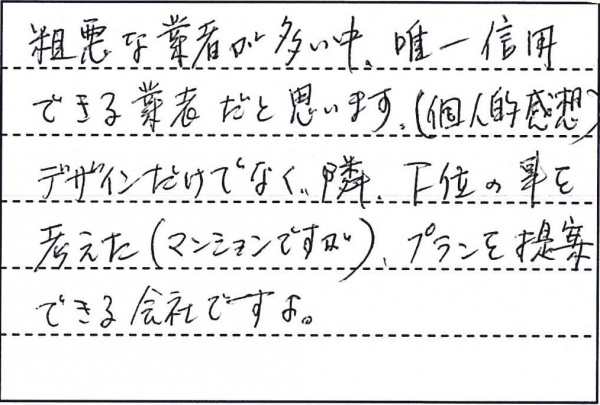 粗悪な業者が多い中、唯一信用
できる業者だと思います。(個人的感想)
デザインだけでなく、隣、下位の事を
考えた(マンションですが)、プランを提案
できる会社ですよ。